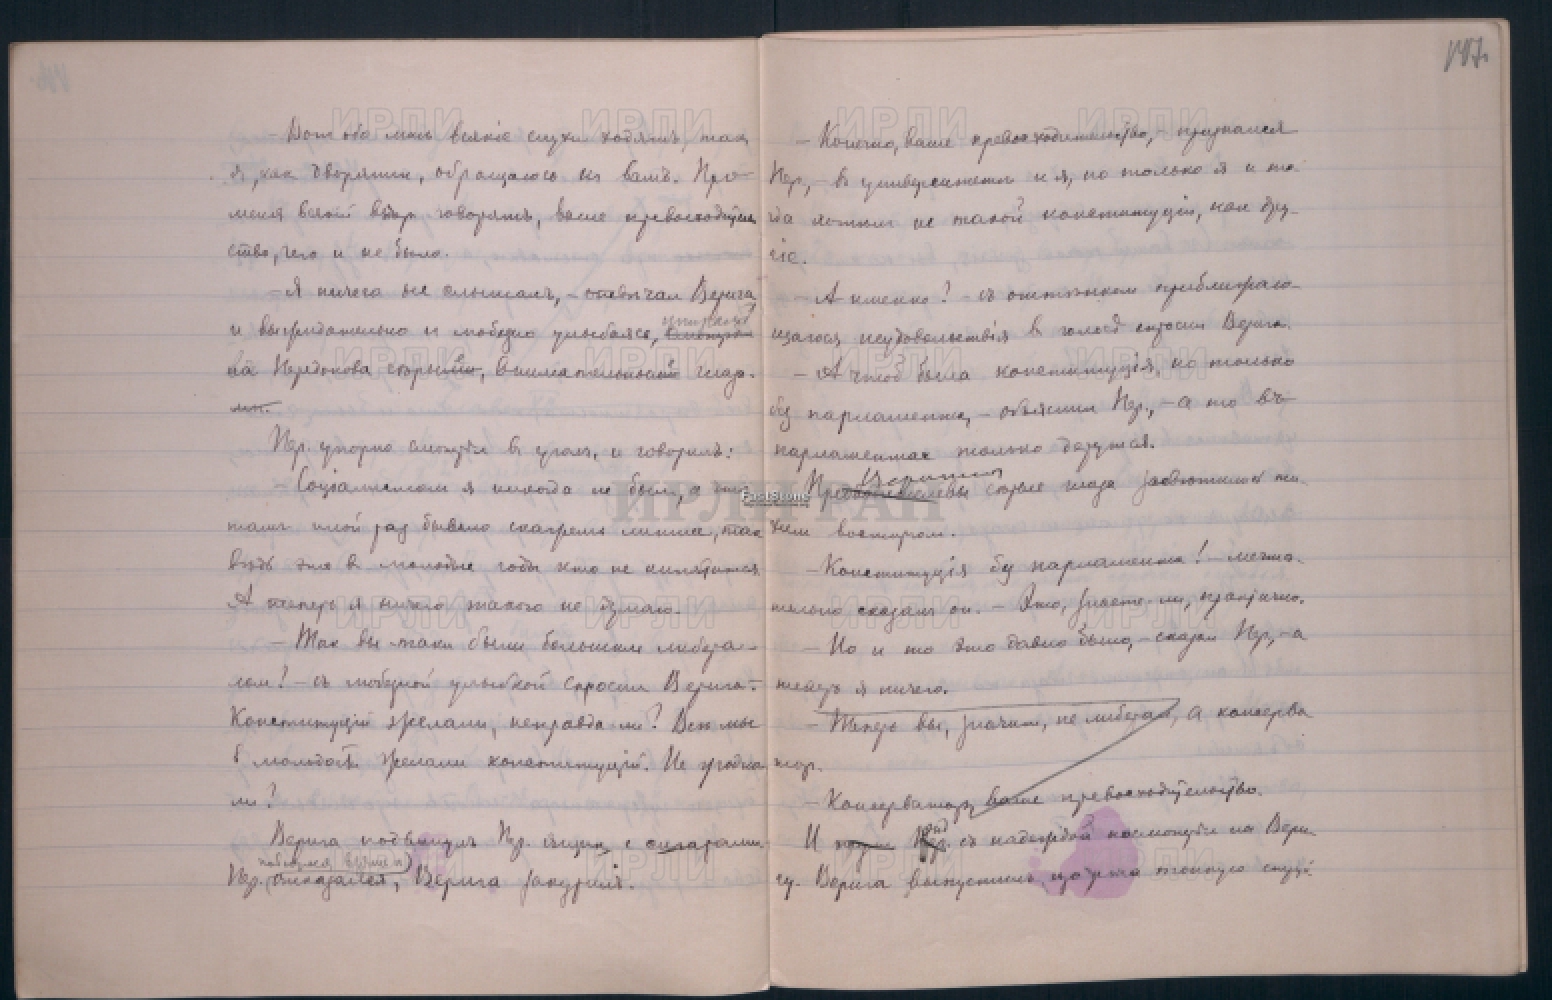 147.
— Вот обо мнѣ всякіе слухи ходятъ, такъ
я, какъ дворянин, обращаюсь къ вамъ. Про
меня всякій вздор говорятъ, ваше превосходитель
ство, чего и не было.
— Я ничего не слышалъ, – отвѣчал Верига
и выжидательно и любезно улыбаясь,
на Передонова сѣрый, внимательный глаз.
Пер. упорно смотрѣл в угол, и говорилъ:
— Соціалистом я никогда не был, а что
тамъ иной раз бывало скажешь лишнее, так
вѣдь это в молодые годы кто не кипятится.
А теперь я ничего такого не думаю.
— Так вы таки были большим либера-
лом? – съ любезной улыбкой спросил Верига. –
Конституцій желали, неправда ли? Всѣ мы
в молодости желали конституцій. Не угодно
ли?
Верига подвинулъ Пер. ящик с сигарами.
побоялся взять и
Пер. отказался, Верига закурилъ.
— Конечно, ваше превосходительство, – признался
Пер., – в университетѣ и я, но только я и то
гда хотѣл не такой конституціи, как дру-
гіе.
— А именно? – съ оттѣнком приближаю-
щагося неудовольствія в голосѣ спросил Верига.
— А чтоб была конституція, но только
без парламента, – объяснил Пер., – а то въ
парламентах только дерутся.
Веригины
сѣрые глаза засвѣтились ти-
хим восторгом.
— Конституція без парламента! – мечта-
тельно сказал он. – Это, знаете ли, практично.
— Но и то это давно было, – сказал Пер., – а
теперь я ничего.
— Теперь вы, значит, не либерал, а консерва
тор.
— Консерватор, ваше превосходительство.
И Пер. съ надеждой посмотрѣл на Вери-
гу. Верига выпустилъ изо рта тонкую струй
ИРЛИ
ИРЛИ РАН
FastStone